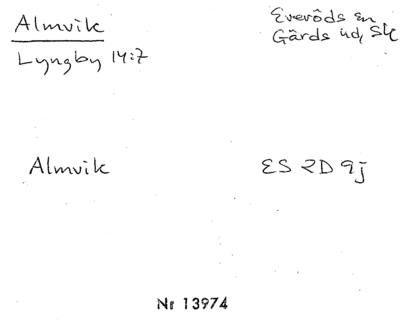 Almvik
Everöds sn
Gärds hd, Sk
Lyngby 14:7
Almvik
ES 2D 9j
Nr 13974